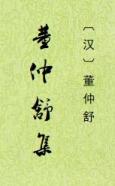 〔汉〕董仲舒
董仲舒集